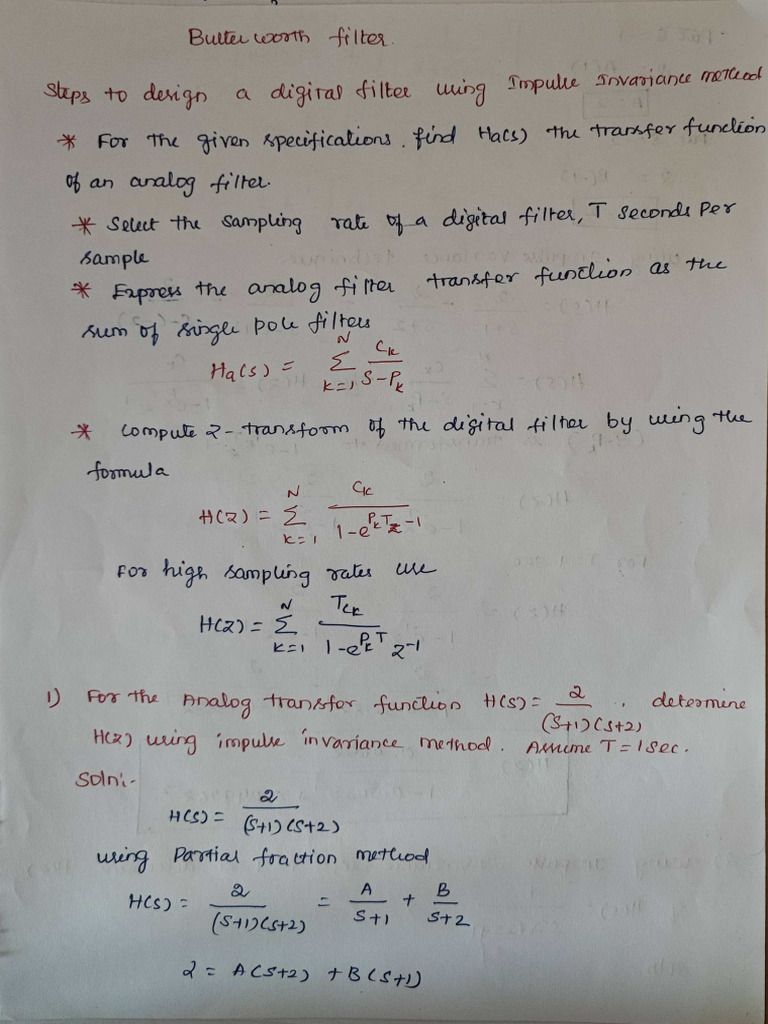 Butter worth filter.
Steps to design a digital filter using Impulse Invariance method
* For the given specifications, find Ha(s) the transfer function
of an analog filter.
* Select the sampling rate of a digital filter, T seconds per
sample
* Express the analog filter transfer function as the
sum of single pole filters
Ha(s) = N Σ k=1 Ck / S-Pk
* Compute z-transform of the digital filter by using the
formula
H(z) = N Σ k=1 Ck / 1-e^PkT z^-1
For high sampling rates use
H(z) = N Σ k=1 TCk / 1-e^PkT z^-1
1) For the Analog transfer function H(s) = 2 / (S+1)(S+2) , determine
H(z) using impulse invariance method. Assume T = 1 sec.
Soln:-
H(s) = 2 / (S+1)(S+2)
using Partial fraction method
H(s) = 2 / (S+1)(S+2) = A / S+1 + B / S+2
2 = A(S+2) + B(S+1)